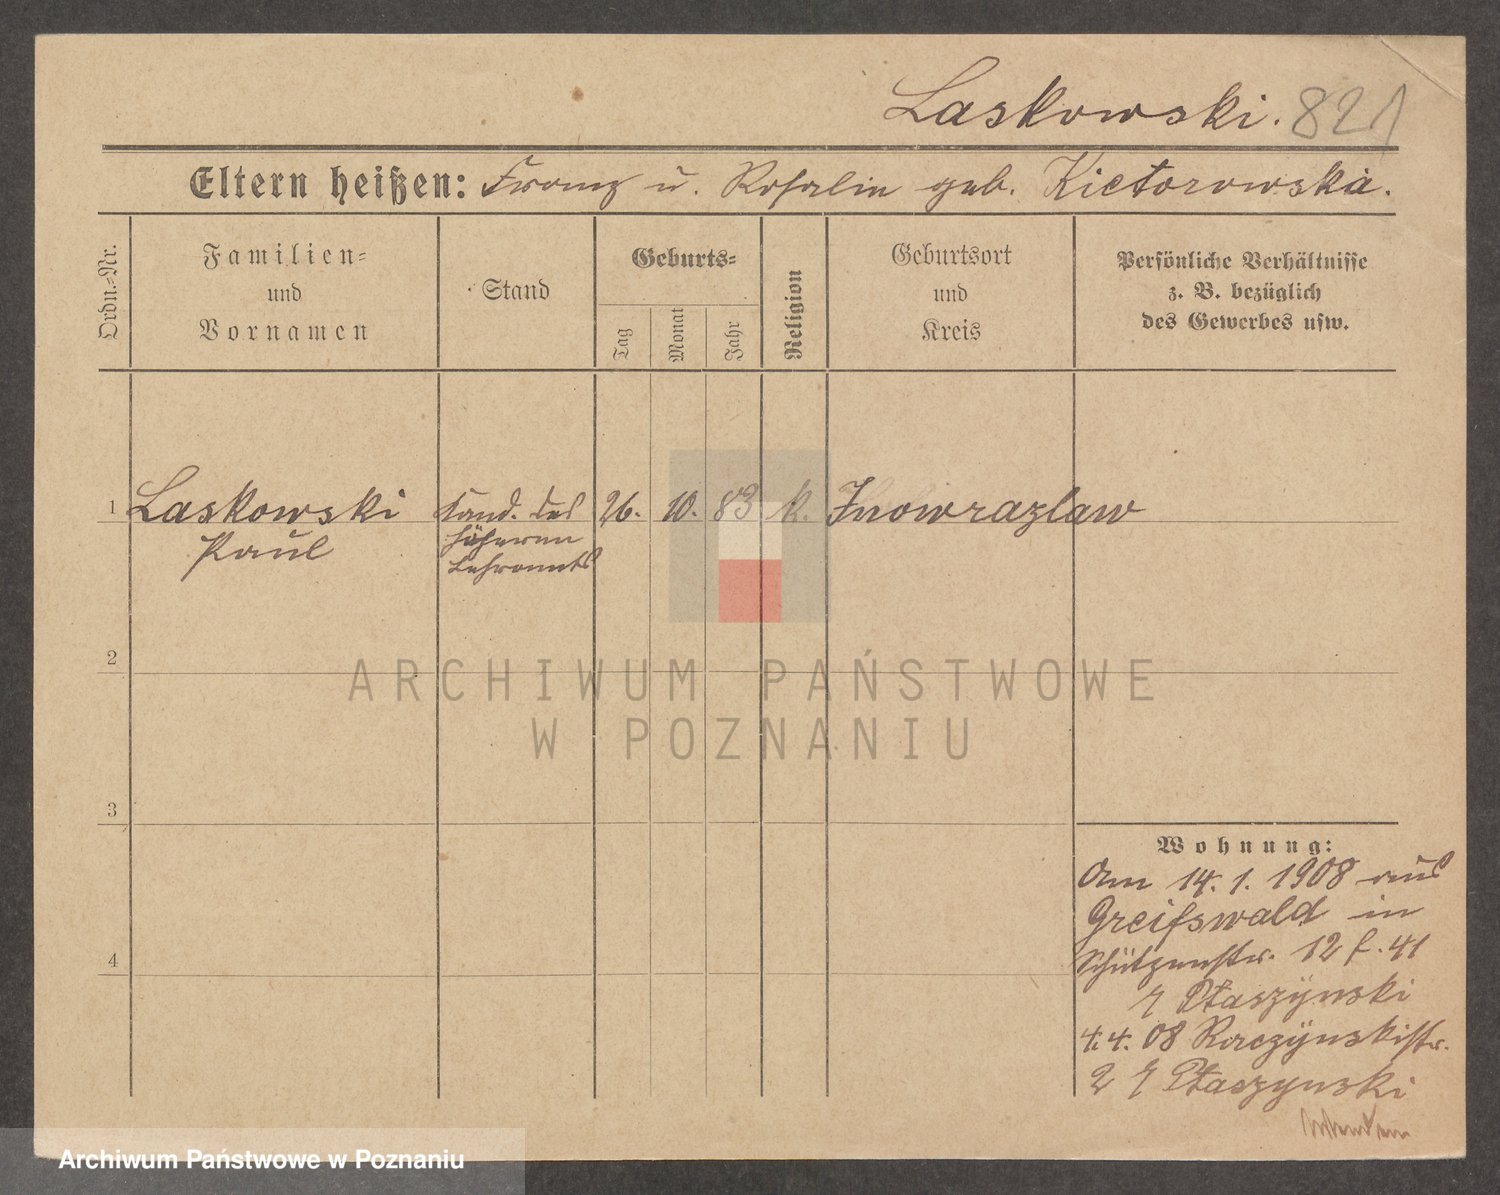 Laskowski. 821
Eltern heißen: Franz u. Rosalie geb. Kietorowska.
Ordn.-Nr.
Familien-
und
Vornamen
Stand
Geburts-
Tag
Monat
Jahr
Religion
Geburtsort
und
Kreis
Persönliche Verhältnisse
z. B. bezüglich
des Gewerbes usw.
1 Laskowski Kand. des 26. 10. 83 k. Inowrazlaw
Paul höheren
Lehramts
2
ARCHIWUM PAŃSTWOWE
W POZNANIU
3
Wohnung:
Am 14. 1. 1908 aus
Greifswald in
Schützenstr. 12 f. 41
Ptaszynski
4
4.4. 08 Raczynskistr.
2 Ptaszynski
Archiwum Państwowe w Poznaniu